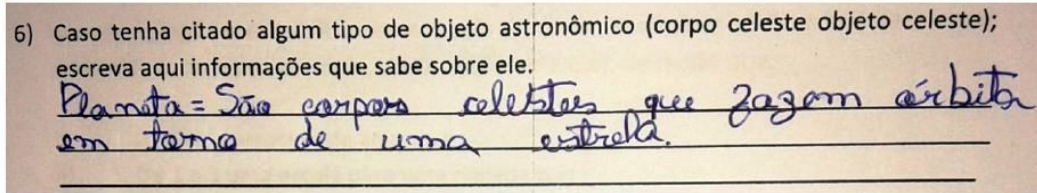 6) Caso tenha citado algum tipo de objeto astronômico (corpo celeste objeto celeste);
escreva aqui informações que sabe sobre ele.
Planeta = São corpos celestes que fazem órbita
em torno de uma estrela.